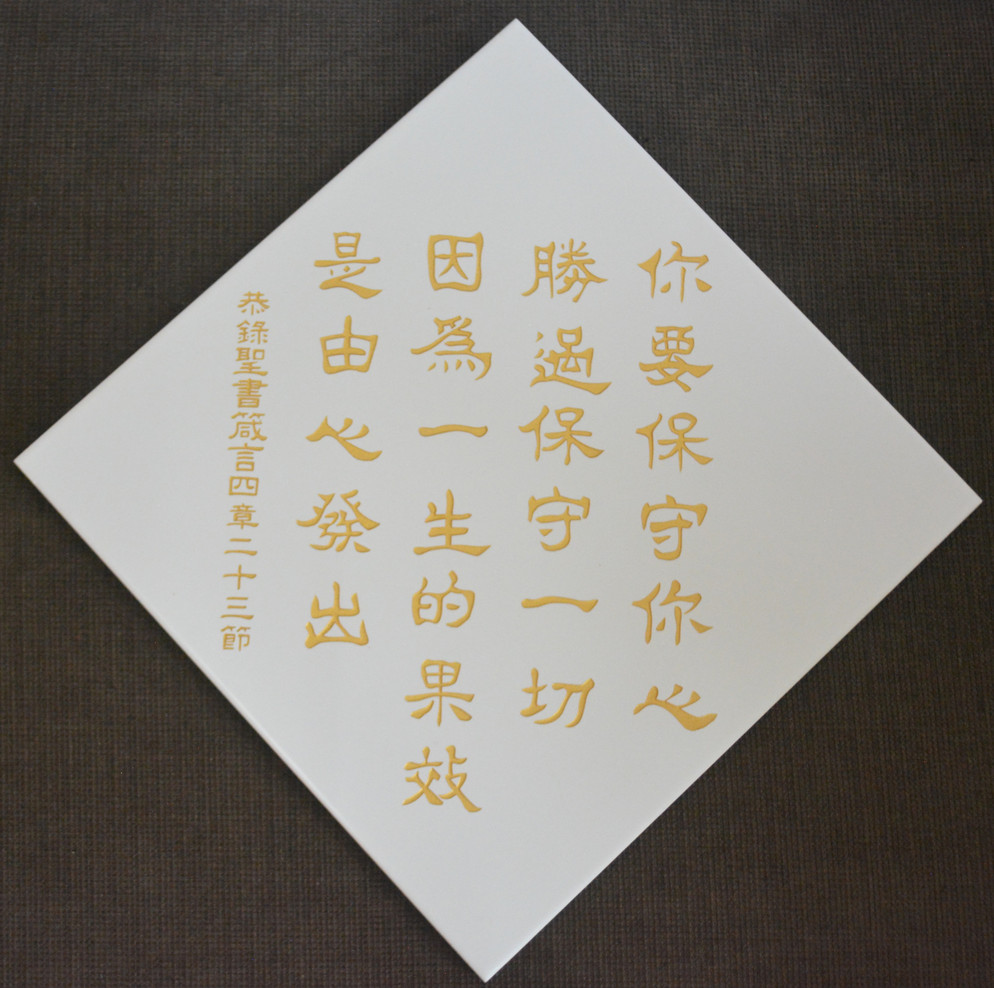 你要保守你心
勝過保守一切
因為一生的果效
是由心發出
恭錄聖書箴言四章二十三節